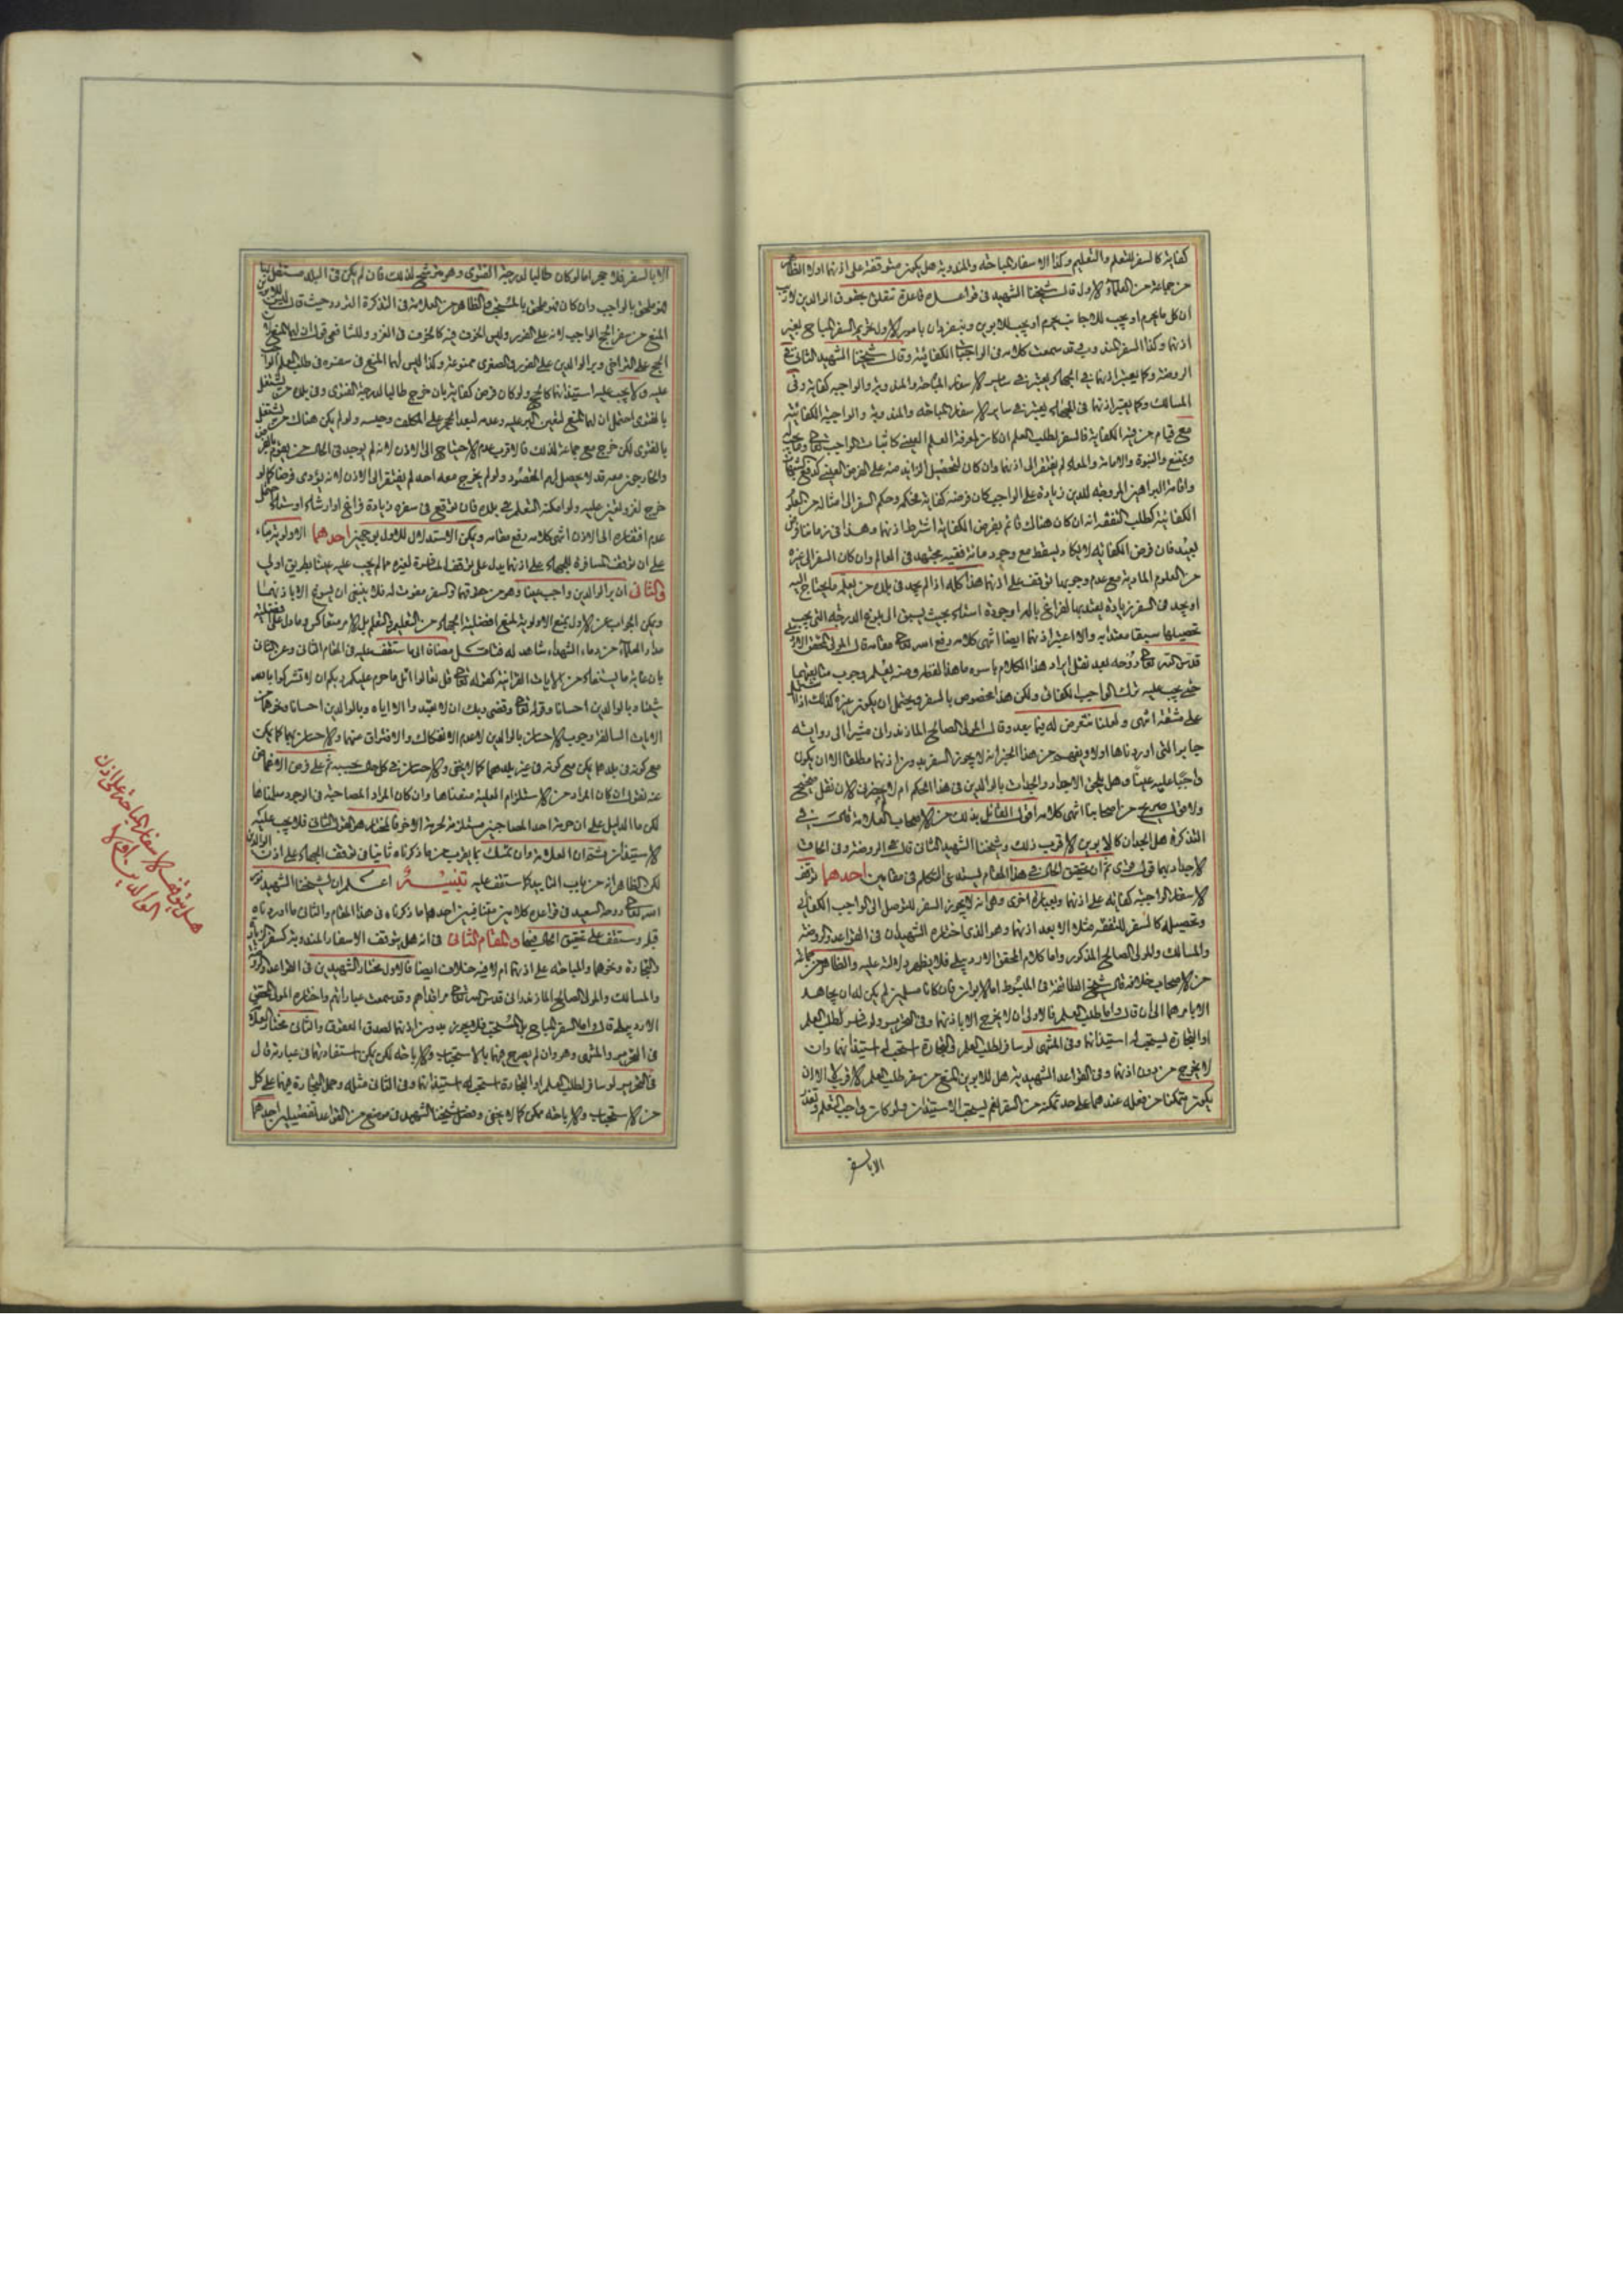 كفاية كالسفر للتعلم والتعليم وكذا الاسفار المباحة والمندوبة هل يكون متوقفة على اذنهما اولا الظاهر
من جماعة من العلماء الاول قال شيخنا الشهيد فى قواعده قاعدة تتعلق بحقوق الوالدين لاريب
ان كل ما يحرم او يجب للاجانب يحرم او يجب للابوين وينفردان بامور الاول تحريم السفر المباح بغير
اذنهما وكذا السفر المندوب وقد سمعت كلامه فى الواجبات الكفائية وقال شيخنا الشهيد الثانى فى
الروضة وكما يعتبر اذنهما فى الجهاد يعتبر فى ساير الاسفار المباحة والمندوبة والواجبة كفاية وفى
المسالك وكما يعتبر اذنهما فى الجهاد يعتبر فى ساير الاسفار المباحة والمندوبة والواجبة الكفائية
مع قيام من فيه الكفاية فالسفر لطلب العلم ان كان لمعرفة العلم العينى كاثبات الواجب تعالى وما يجب
ويمتنع والنبوة والامامة والمعاد لم يفتقر الى اذنهما وان كان لتحصيل الزايد منه على الفرض العينى كدفع الشبهات
واقامة البراهين المروجة للدين زيادة على الواجب كان فرضه كفاية فحكمه وحكم السفر الى امثاله من العلوم
الكفائية كطلب التفقه انه ان كان هناك قائم بفرض الكفاية اشترط اذنهما وهذا فى زماننا فرض
بعيد فان فرض الكفاية لا يكاد يسقط مع وجود مائة فقيه مجتهد فى العالم وان كان السفر الى غيره
من العلوم المادية مع عدم وجوبها توقف على اذنهما هذا كله اذا لم يجد فى بلده من يعلمه ما يحتاج اليه
او يجد فى السفر زيادة يعتد بها لفراغ بال او جودة استاد بحيث يسبق الى بلوغ الدرجة التى يجب
تحصيلها سبقا معتدا به والا اعتبر اذنهما ايضا انتهى كلامه رفع الله تعالى مقامه قال المولى المحقق الاردبيلى
قدس الله تعالى روحه بعد نقل ايراد هذا الكلام باسره ما هذا لفظه ومنه يعلم وجوب متابعتهما
حتى يجب عليه ترك الواجب الكفائى ولكن هذا مخصوص بالسفر ويحتمل ان يكون غيره كذلك اذا اشتمل
على مشقة انتهى ولعلنا نتعرض له فيما بعد وقال المولى الصالح المازندرانى مشيرا الى رواية
جابر التى اوردناها اولا ويفهم من هذا الخبر انه لا يجوز السفر بدون اذنهما مطلقا الا ان يكون
واجبا عليه عينا وهل يلحق الاجداد والجدات بالوالدين فى هذا الحكم ام لا
ولا قول صريح من اصحابنا انتهى كلامه اقول القائل بذلك من الاصحاب العلامة قال فى
التذكرة هل الجدان كالابوين الاقرب ذلك وشيخنا الشهيد الثانى قال فى الروضة وفى الحاق
الاجداد بهما قول قوى ثم ان تحقيق الحال فى هذا المقام يستدعى التكلم فى مقامين احدهما توقف
الاسفار الواجبة كفاية على اذنهما وبعبارة اخرى وهى انه لا يجوز السفر للتوصل الى الواجب الكفائى
وتحصيله كالسفر للتفقه مثلا الا بعد اذنهما وهو الذى اختاره الشهيدان فى القواعد والروضة
والمسالك والمولى الصالح المذكور واما كلام المحقق الاردبيلى فلا يظهر دلالته عليه والظاهر من جماعة
من الاصحاب خلافه قال شيخ الطائفة فى المبسوط اما الابوان فان كانا مسلمين لم يكن له ان يجاهد
الا بامرهما الى ان قال واما طلب العلم فالاولى ان لا يخرج الا باذنهما وفى التحرير ولو سافر لطلب العلم
او التجارة يستحب له استيذانهما وفى المنتهى لو سافر لطلب العلم والتجارة استحب له استيذانهما وان
لا يخرج من دون اذنهما وفى القواعد الشهيدية هل للابوين المنع من سفر طلب العلم الاقرب لا ان
يكون متمكنا من فعله عندهما على حد تمكنه من السفر نعم يستحب الاستيذان ولو كان واجب التعلم وتعذر
الا بالسفر
الا بالسفر فلا حجر اما لو كان طالبا لدرجة الفتوى وهو مترشح لذلك فان لم يكن فى البلد مستقل بها
فهو ملحق بالواجب وان كان فهو ملحق بالمستحب والظاهر من العلامة فى التذكرة التردد حيث قال ليس للابوين
المنع من سفر الحج الواجب لانه على الفور وليس الخوف فيه كالخوف فى الغزو وللشافعى قول ان لهما المنع لان
الحج على التراخى وبر الوالدين على الفور والصغرى ممنوعة وكذا ليس لهما المنع فى سفره فى طلب العلم الواجب
عليه ولا يجب عليه استيذانهما كالحج ولو كان فرض كفاية بان خرج طالبا لدرجة الفتوى وفى بلده من يشتغل
بالفتوى احتمل ان لهما المنع لتعين البر عليه وعدمه لبعد الحجر على المكلف وحبسه ولو لم يكن هناك من يشتغل
بالفتوى لكن خرج مع جماعة لذلك فالاقرب عدم الاحتياج الى الاذن لانه لم يوجد فى الحال من يقوم بالفرض
والخارجون معه قد لا يحصل لهم المقصود ولو لم يخرج معه احد لم يفتقر الى الاذن لانه يؤدى فرضا كما لو
خرج لفرض تعين عليه ولو امكنه التعلم فى بلده فان توقع فى سفره زيادة فراغ او ارشاد استاد احتمل
عدم افتقاره الى الاذن انتهى كلامه رفع مقامه ويمكن الاستدلال للاول بوجهين احدهما الاولوية بناء
على ان توقف المسافرة للجهاد على اذنهما يدل على توقف المسافرة لغيره مما لم يجب عليه عينا بطريق اولى
والثانى ان بر الوالدين واجب عينا وهو من حقوقهما والسفر مفوت له فلا ينبغى ان يسوغ الا باذنهما
ويمكن الجواب عن الاول بمنع الاولوية لمنع افضلية الجهاد من التعليم والتعلم بل الامر متعاكس وما دل على افضلية
مداد العلماء من دماء الشهداء شاهد له فتامل مضافا الى ما ستقف عليه فى المقام الثانى وعن الثانى
بان غاية ما يستفاد من الايات القرانية كقوله تعالى قل تعالوا اتل ما حرم عليكم ربكم ان لا تشركوا به
شيئا وبالوالدين احسانا وقوله تعالى وقضى ربك ان لا تعبدوا الا اياه وبالوالدين احسانا ونحوهما من
الايات السالفة وجوب الاحسان بالوالدين لا عدم الانفكاك والافتراق منهما والاحسان بهما كما يمكن
مع كونه فى بلدهما يمكن مع كونه فى غير بلدهما كما لا يخفى والاحسان فى كل حال بحسبه ثم على فرض الاغماض
عنه نقول ان كان المراد من الاستلزام العلية منعناها وان كان المراد المصاحبة فى الوجود سلمناها
لكن ما الدليل على ان حرمة احد المصاحبين مستلزمة لحرمة الاخر فالمختار هو القول الثانى فلا يجب عليه
الاستيذان وان تمسك بما يقرب من ما ذكرناه ثانيا فى توقف الجهاد على اذن الوالدين
لكن الظاهر انه من باب التاييد كما ستقف عليه تنبيه اعلم ان لشيخنا الشهيد نور
الله تعالى روحه السعيد فى قواعده كلامين متنافيين احدهما ما ذكرناه فى هذا المقام والثانى ما اوردناه
قبل وستقف على تحقيق الحال فيهما والمقام الثانى فى انه هل يتوقف الاسفار المندوبة كسفر الزيارة
والتجارة ونحوهما والمباحة على اذنهما ام لا فيه خلاف ايضا فالاول مختار الشهيدين فى القواعد والروضة
والمسالك والمولى الصالح المازندرانى قدس الله تعالى مراقدهم وقد سمعت عباراتهم واختاره المولى المحقق
الاردبيلى قال اما السفر المباح بل المستحب فلا يجوز بدون اذنهما لصدق العقوق والثانى مختار العلامة
فى التحرير والمنتهى وهو وان لم يصرح فيهما بالاستحباب والاباحة لكن يمكن استفادتهما فى عبارته قال
فى التحرير لو سافر لطلب العلم او التجارة استحب له استيذانهما وفى الثانى مثله وحمل التجارة فيهما على كل
من الاستحباب والاباحة ممكن كما لا يخفى وفصل شيخنا الشهيد فى موضع من القواعد تفصيلين احدهما
هل يتوقف الاسفار المباحة على اذن
الوالدين ام لا